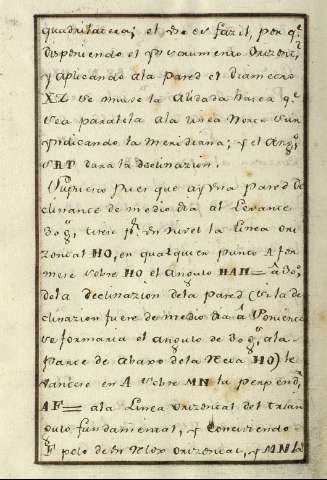 quadrilatera; el uso es fazil, por q.e
disponiendo el ynstrumento orizont.l
y aplicando ala pared el diametro
XZ se mueve la Alidada hasta q.e
sea paralela ala linea Norte Sur
yndicando la Meridiana; y el Ang.o
SRT dara la declinazion.
Supuesto pues que ay una pared de
clinante de medio dia al Levante
30 g.s tirese p.r en nivel la linea ori
zontal HO, en qualquier punto A for
mese sobre HO el angulo HAM = â 30 g.s
dela declinazion dela pared (si la de
clinazion fuere de medio dia â Poniente
se formaria el angulo de 30 g.s ala
parte de abaxo dela Recta HO) le
vantese en A sobre MN la perpend.r
AF = ala Linea orizontal del trian
gulo fundamental, y Constituiendo
F polo de un Relox orizontal, y MN la